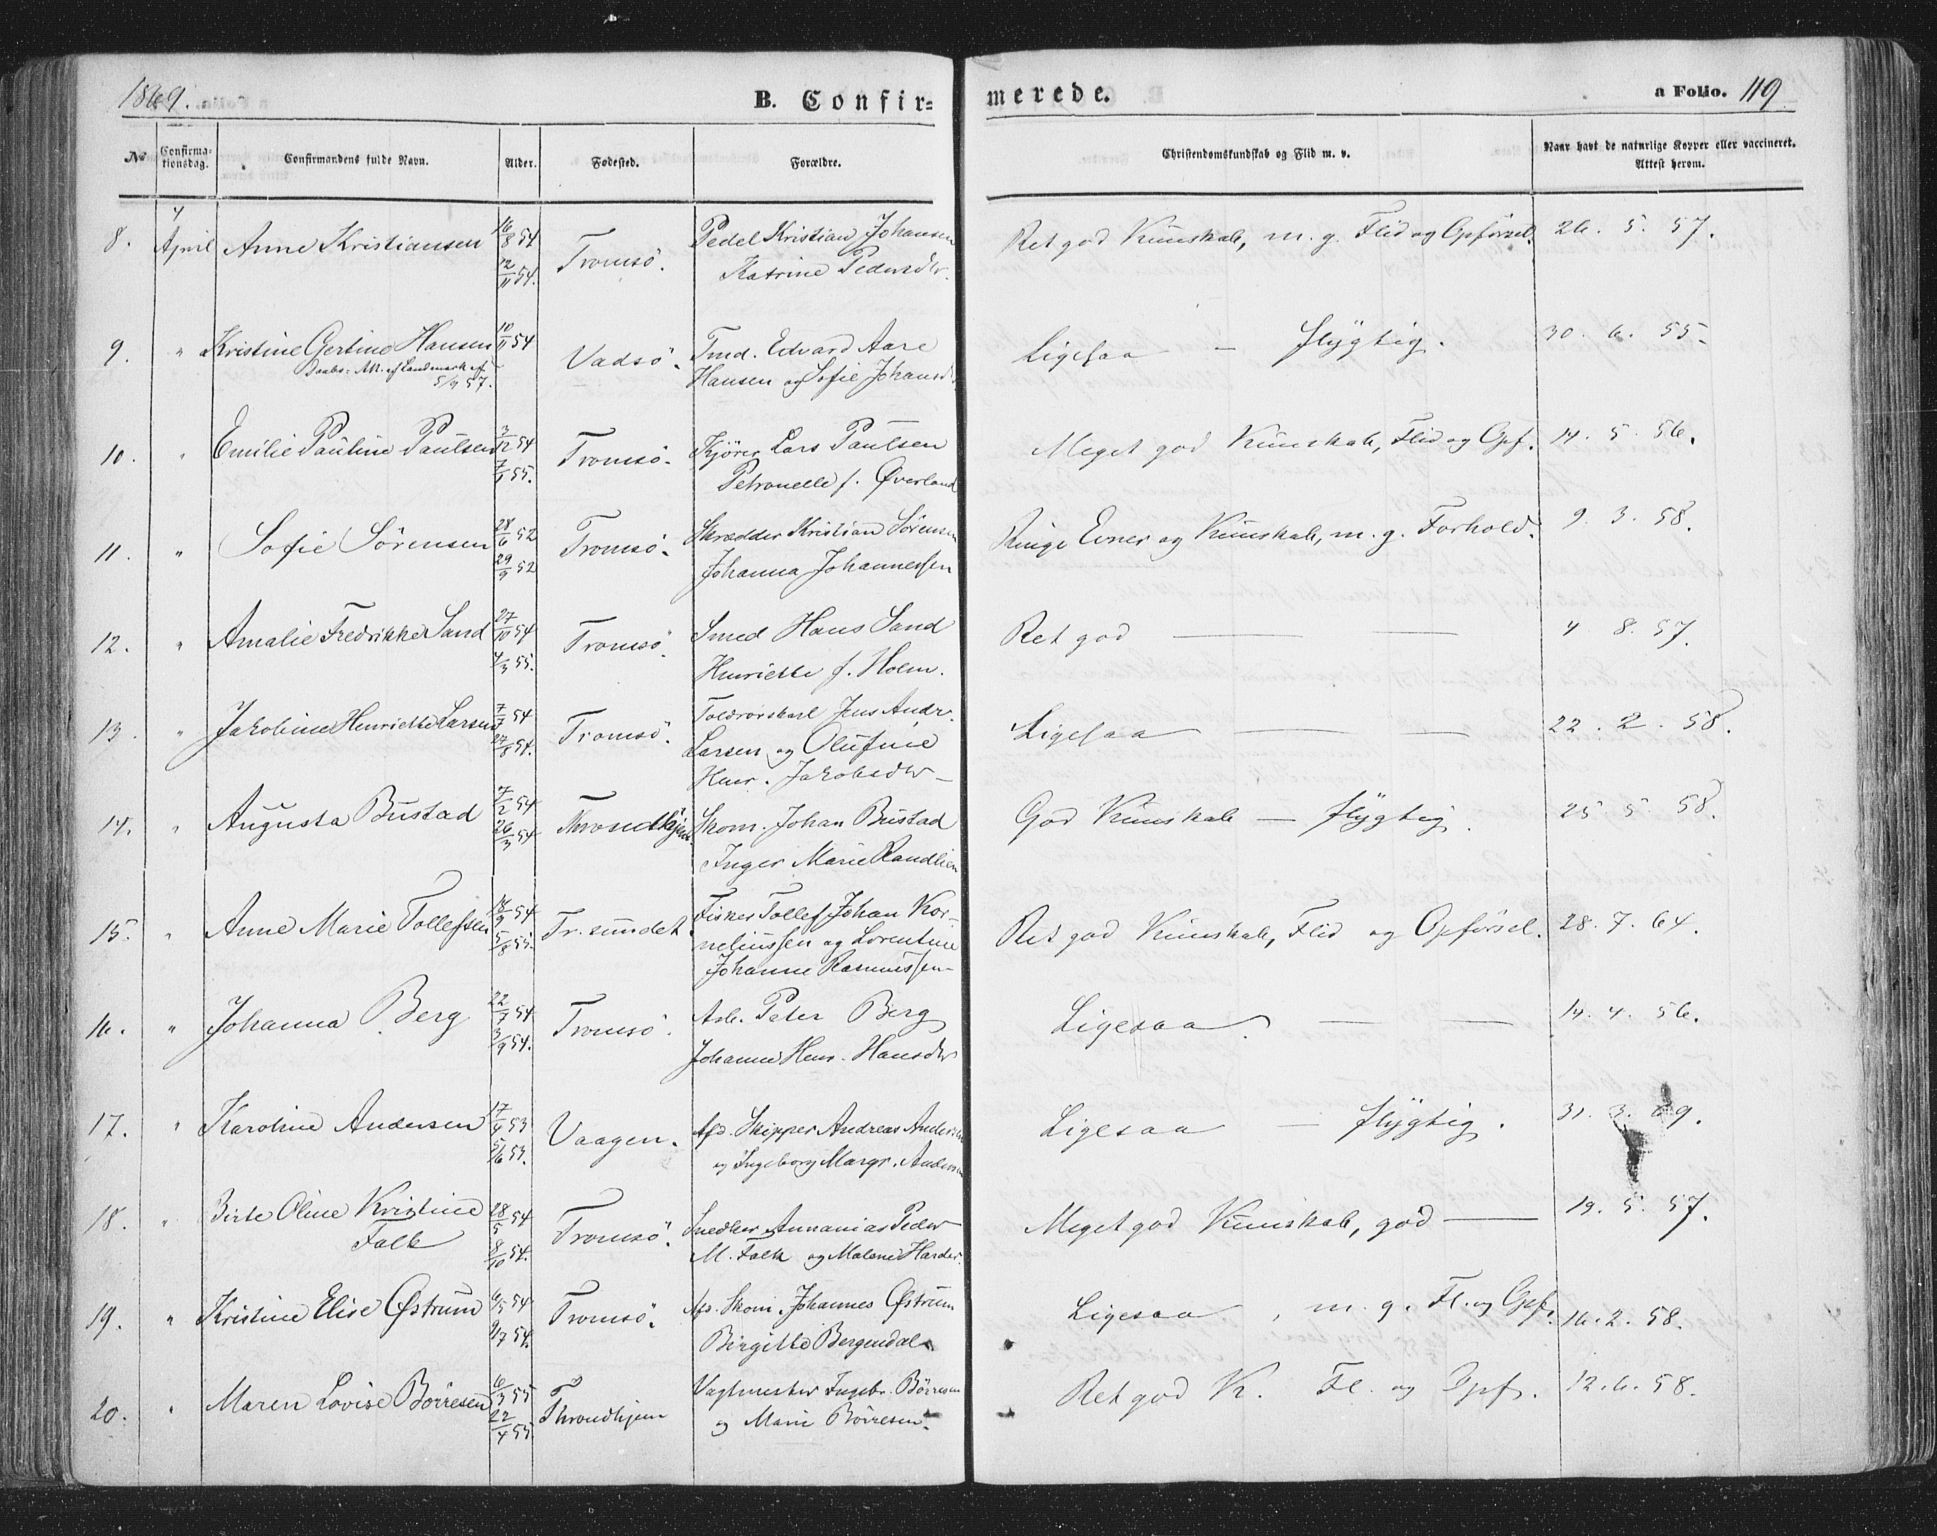 1869. B. Confir= merede. a Folio. 119
No Confirma-tionsdag. Confirmandens fulde Navn. Alder. Fødested. Forældre. Christendomskundskab og Flid m. v. Naar havt de naturlige Kopper eller vaccineret. Attest herom.
4
8. April Anne Kristiansen 16/8 54 Tromsö. Pedel Kristian Johansen Ret god Kundskab, m. g. Flid og Opförsel. 26. 5. 57.
12/11 54. Katrine Pedersdtr.
9. " Kristine Gertine Hansen 10/11 54 Vadsö. Tmd. Edvard Aare Ligesaa — flygtig. 30. 6. 55.
Daabs: Att. af Landmark af Hansen og Sofie Johansd
5/9 57.
10. " Emilie Pauline Paulsen 3/12 54 Tromsö. Kjörer Lars Paulsen Meget god Kundskab, Flid og Opf. 14. 5. 56.
7/1 55. Petronelle f. Øverland
11. " Sofie Sörensen 28/6 52 Tromsö. Skrædder Kristian Sörensen Ringe Evner og Kundskab, m. g. Forhold. 9. 3. 58.
29/9 52 Johanna Johannessen
12. " Amalie Fredrikke Sand 27/10 54 Tromsö. Smed Hans Sand Ret god — — 4. 8. 57.
4/3 55. Henriette f. Holm.
13. " Jakobine Henriette Larsen 7/7 54 Tromsö. Toldrorskarl Jens Andr. Ligesaa — — 22. 2. 58.
27/8 54. Larsen og Olufine
Henr. Jakobsdtr
14. " Augusta Bustad 7/2 54 Throndhjem Skom. Johan Bustad God Kundskab — flygtig. 25. 5. 58.
26/3 54 Inger Marie Randlien
15. " Anne Marie Tollefsen 18/9 54 Tr.sundet Fisker Tollef Johan Kor- Ret god Kundskab, Flid og Opförsel. 28. 7. 64.
5/8 55. neliussen og Lorentine
Johanne Rasmussen
16. " Johanna Berg 22/7 54 Tromsö. Arb. Peter Berg Ligesaa. — — 14. 4. 56.
3/9 54. Johanne Henr. Hansdtr
17. " Karoline Andersen 17/4 53 Vaagen. Afd. Skipper Andreas Andersen Ligesaa — flygtig. 31. 3. 69.
5/6 53. og Ingeborg Margr. Andersen
18. " Birte Oline Kristine 28/5 54 Tromsö. Snedker Annanias Peder Meget god Kundskab, god — 19. 5. 57.
Falk 8/10 54. M. Falk og Malene Harder.
19. " Kristine Elise Østrum 6/5 54 Tromsö. Afd. Skom. Johannes Østrum Ligesaa , m. g. Fl. og Opf. 16. 2. 58.
9/7 54. Birgitte Bergendal
20. " Maren Lovise Börresen 6/3 55 Throndhjem Vagtmester Ingebr. Börresen Ret god K. Fl. og Opf. 12. 6. 58.
22/4 55 og Marie Börresen.